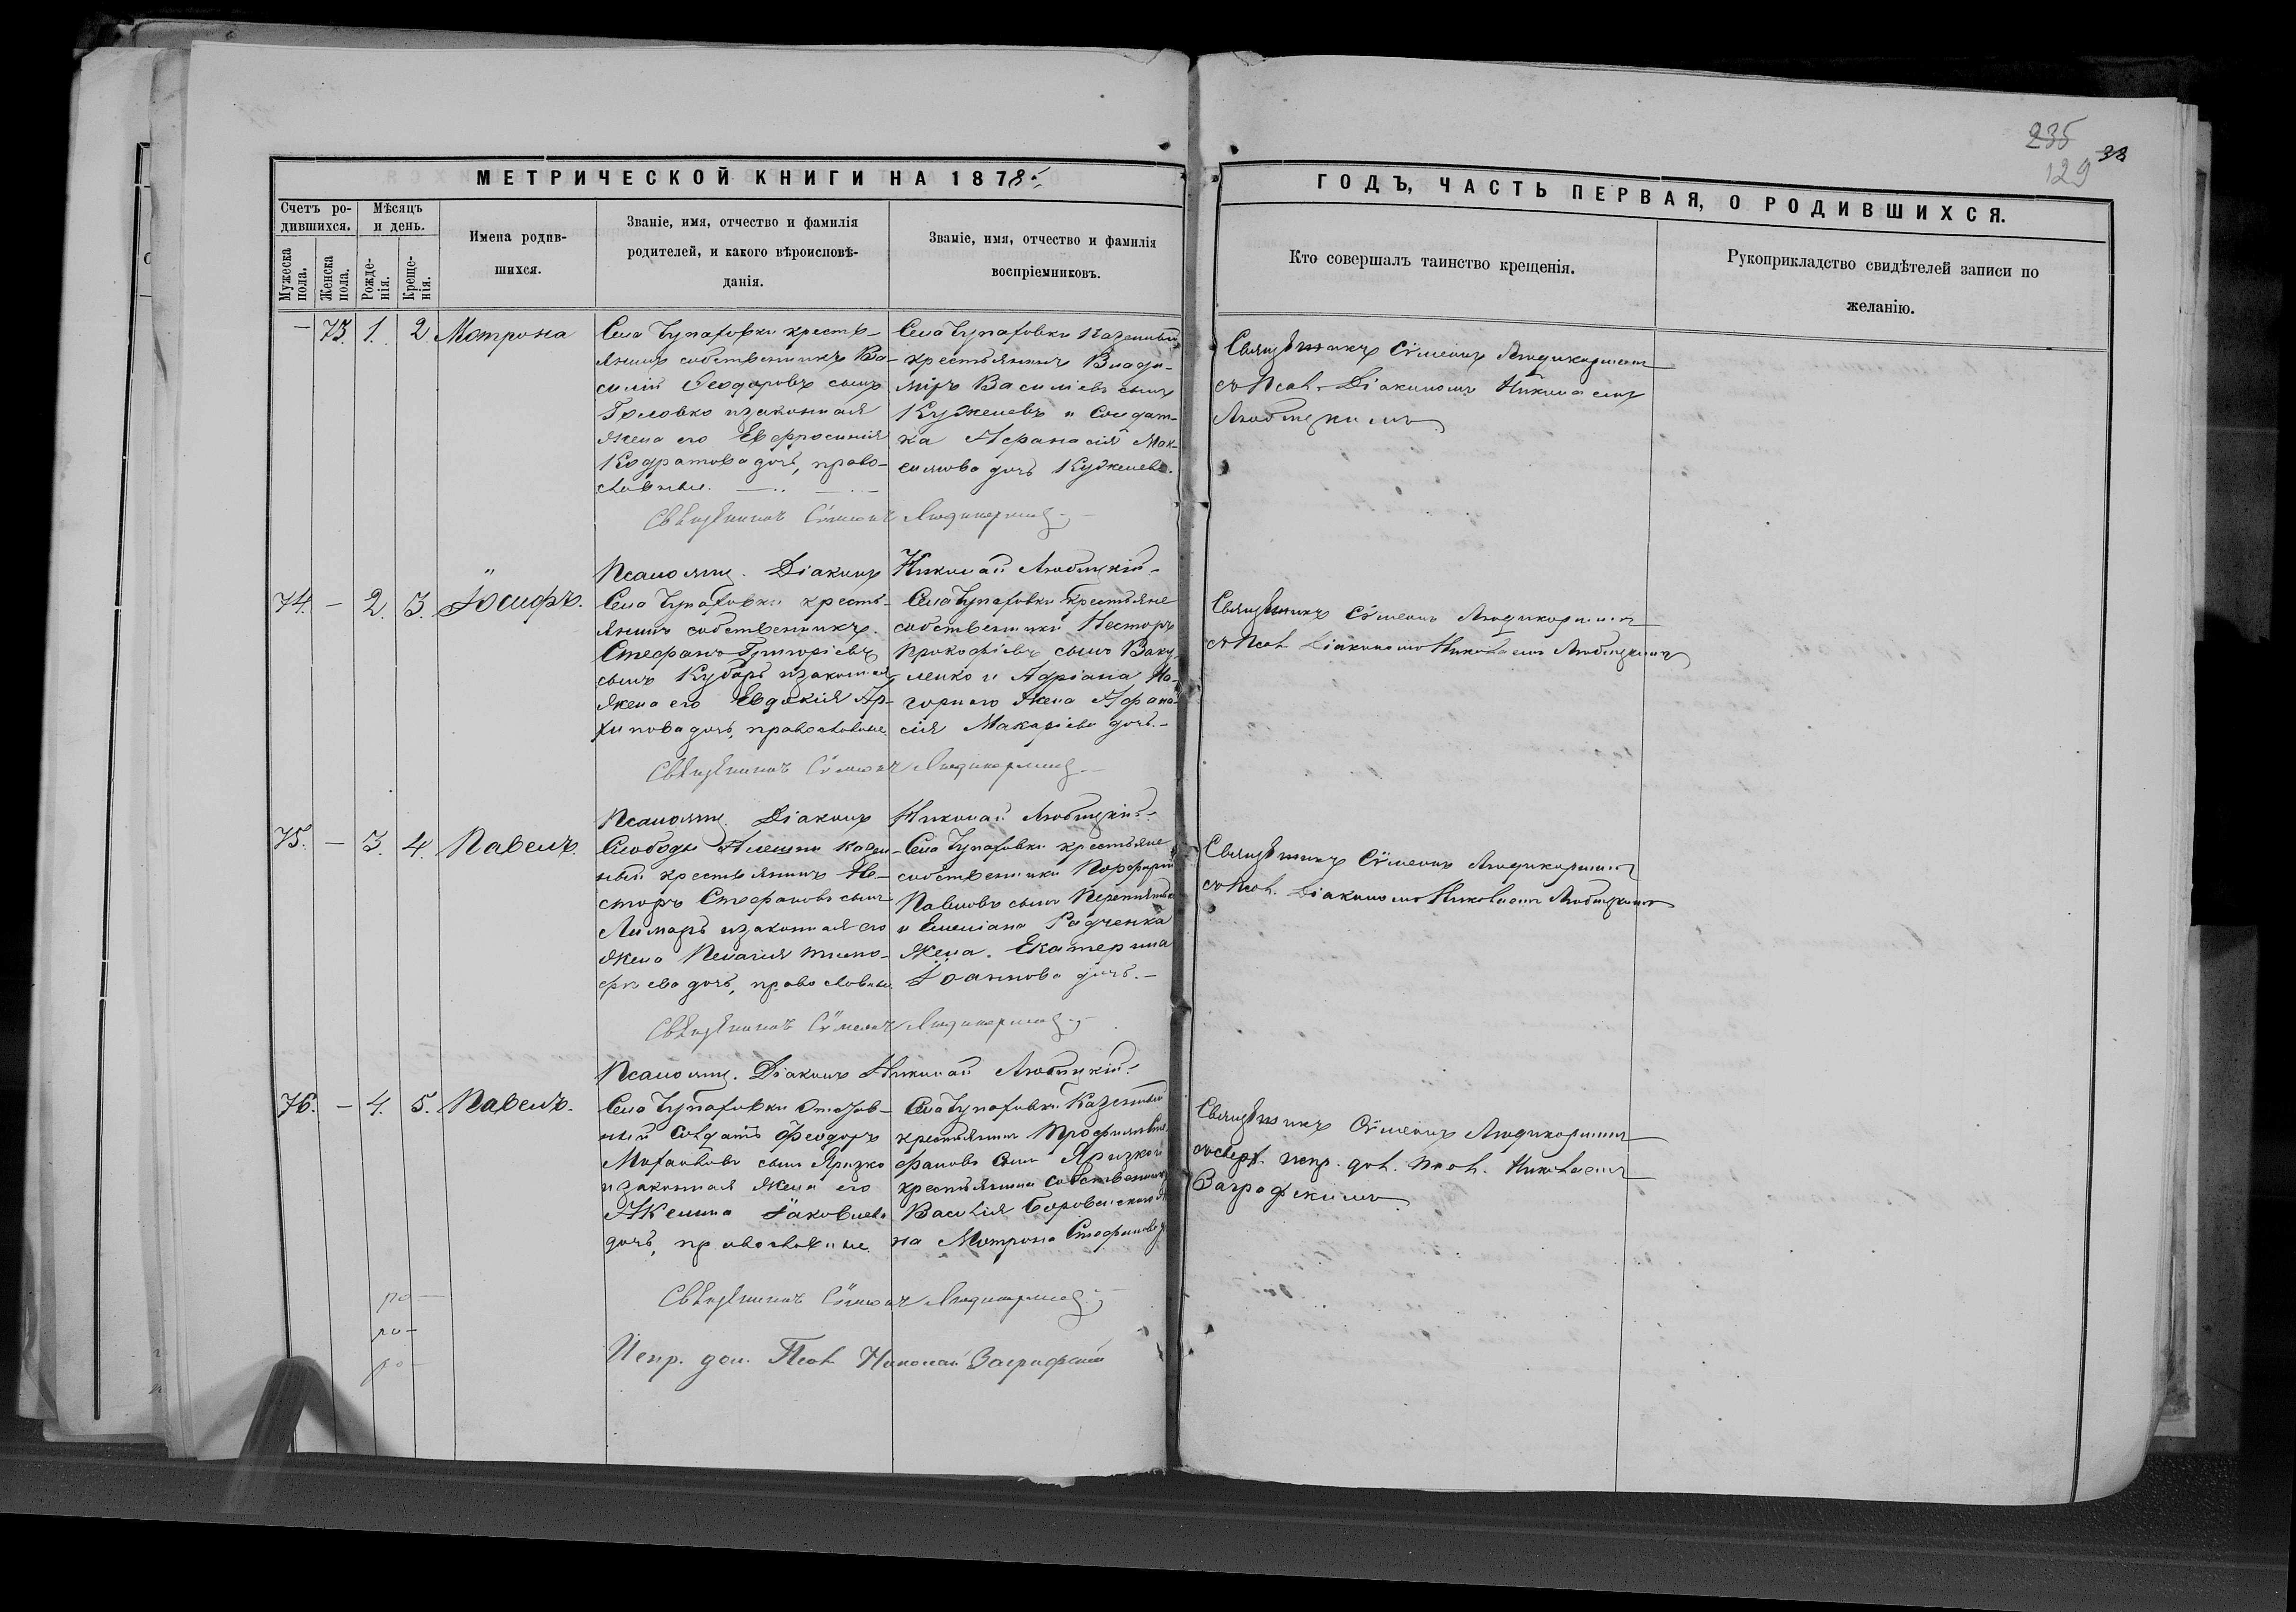 235
129 33
МЕТРИЧЕСКОЙ КНИГИ НА 1878.
ГОДЪ, ЧАСТЬ ПЕРВАЯ, О РОДИВШИХСЯ.
Счетъ ро-
дившихся.
Мужеска
пола.
Женска
пола.
Мѣсяцъ
и день.
Рожде-
нія.
Креще-
нія.
Имена родив-
шихся.
Званіе, имя, отчество и фамилія
родителей, и какого вѣроисповѣ-
данія.
Званіе, имя, отчество и фамилія
воспріемниковъ.
Кто совершалъ таинство крещенія.
Рукоприкладство свидѣтелей записи по
желанію.
— 73. 1. 2 Мотрона
Села Чупаховки кресть-
янинъ собственникъ Ва-
силій Ѳеодоровъ сынъ
Головко и законная
жена его Евфросинія
Кодратова дочь, право-
славные.
Села Чупаховки Казенный
крестьянинъ Влади-
міръ Василіевъ сынъ
Куджелевъ и Солдат-
ка Афанасія Мак-
симова дочь Куджелева.
Священникъ Сѵмеонъ
съ Псал. Діакономъ Николаемъ
Любицкимъ
Священникъ Сѵмеонъ
Псаломщ. Діаконъ Николай Любицкій.
74. — 2. 3. Іосифъ.
Села Чупаховки кресть-
янинъ собственникъ
Стефанъ Григоріевъ
сынъ Кубарь и законная
жена его Евдокія Ар-
хипова дочь, православные.
Села Чупаховки крестьяне
собственники Несторъ
Прокофіевъ сынъ Баку-
ленко и Адріана На-
горнаго жена Афана-
сія Макаріева дочь.
Священникъ Сѵмеонъ
съ Псал. Діакономъ Николаемъ Любицкимъ
Священникъ Сѵмеонъ
Псаломщ. Діаконъ Николай Любицкій.
75. — 3. 4. Павелъ.
Слободы Алешни казен-
ный крестьянинъ Не-
сторъ Стефановъ сынъ
Лимарь и законная его
жена Пелагія Тимо-
фиева дочь, православные.
Села Чупаховки крестьяне
собственники Порфирій
Павловъ сынъ
и Емеліана Радченка
жена Екатерина
Іоаннова дочь.
Священникъ Сѵмеонъ
съ Псал. Діакономъ Николаемъ Любицкимъ
Священникъ Сѵмеонъ
Псаломщ. Діаконъ Николай Любицкій.
76. — 4. 5. Павелъ.
Села Чупаховки Отстав-
ный Солдатъ Феодоръ
Михайловъ сынъ Яризко
и законная жена его
Акелина Іаковлева
дочь, православные.
Села Чупаховки Казенный
крестьянинъ Трофимъ Сте-
фановъ сынъ Яризко и
крестьянина собственника
Василія
на Мотрона Стефанова
Священникъ Сѵмеонъ
сверх. испр. дол. Псал. Николаемъ
Заграфскимъ
Священникъ Сѵмеонъ
Испр. дол. Псал. Николай Заграфскій
ро —
ро —
ро —